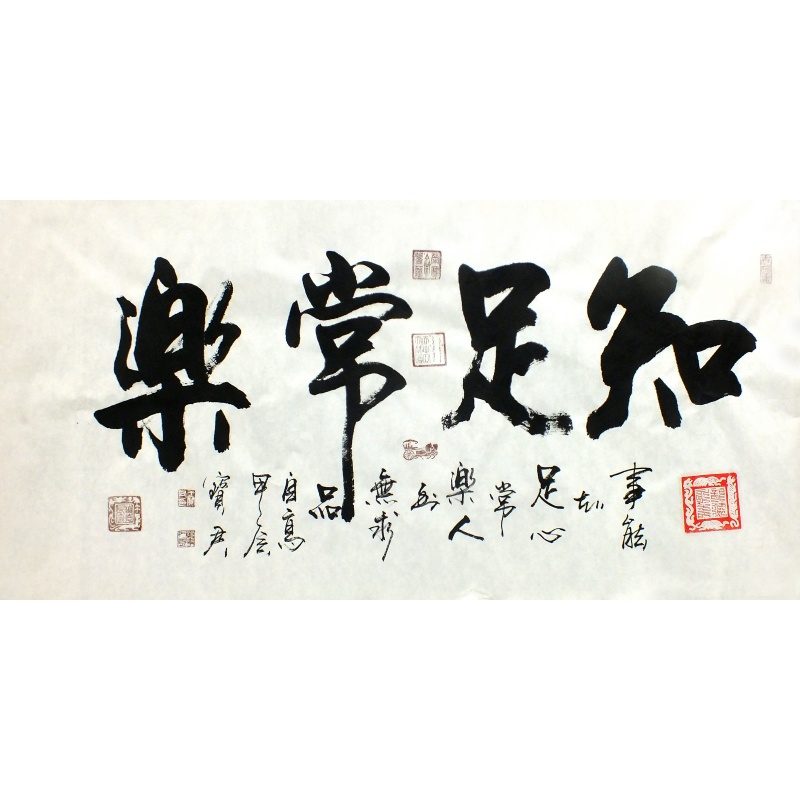 知足常樂
事能
知
足心
常
樂人
到
無求
品
自高
甲
寶君